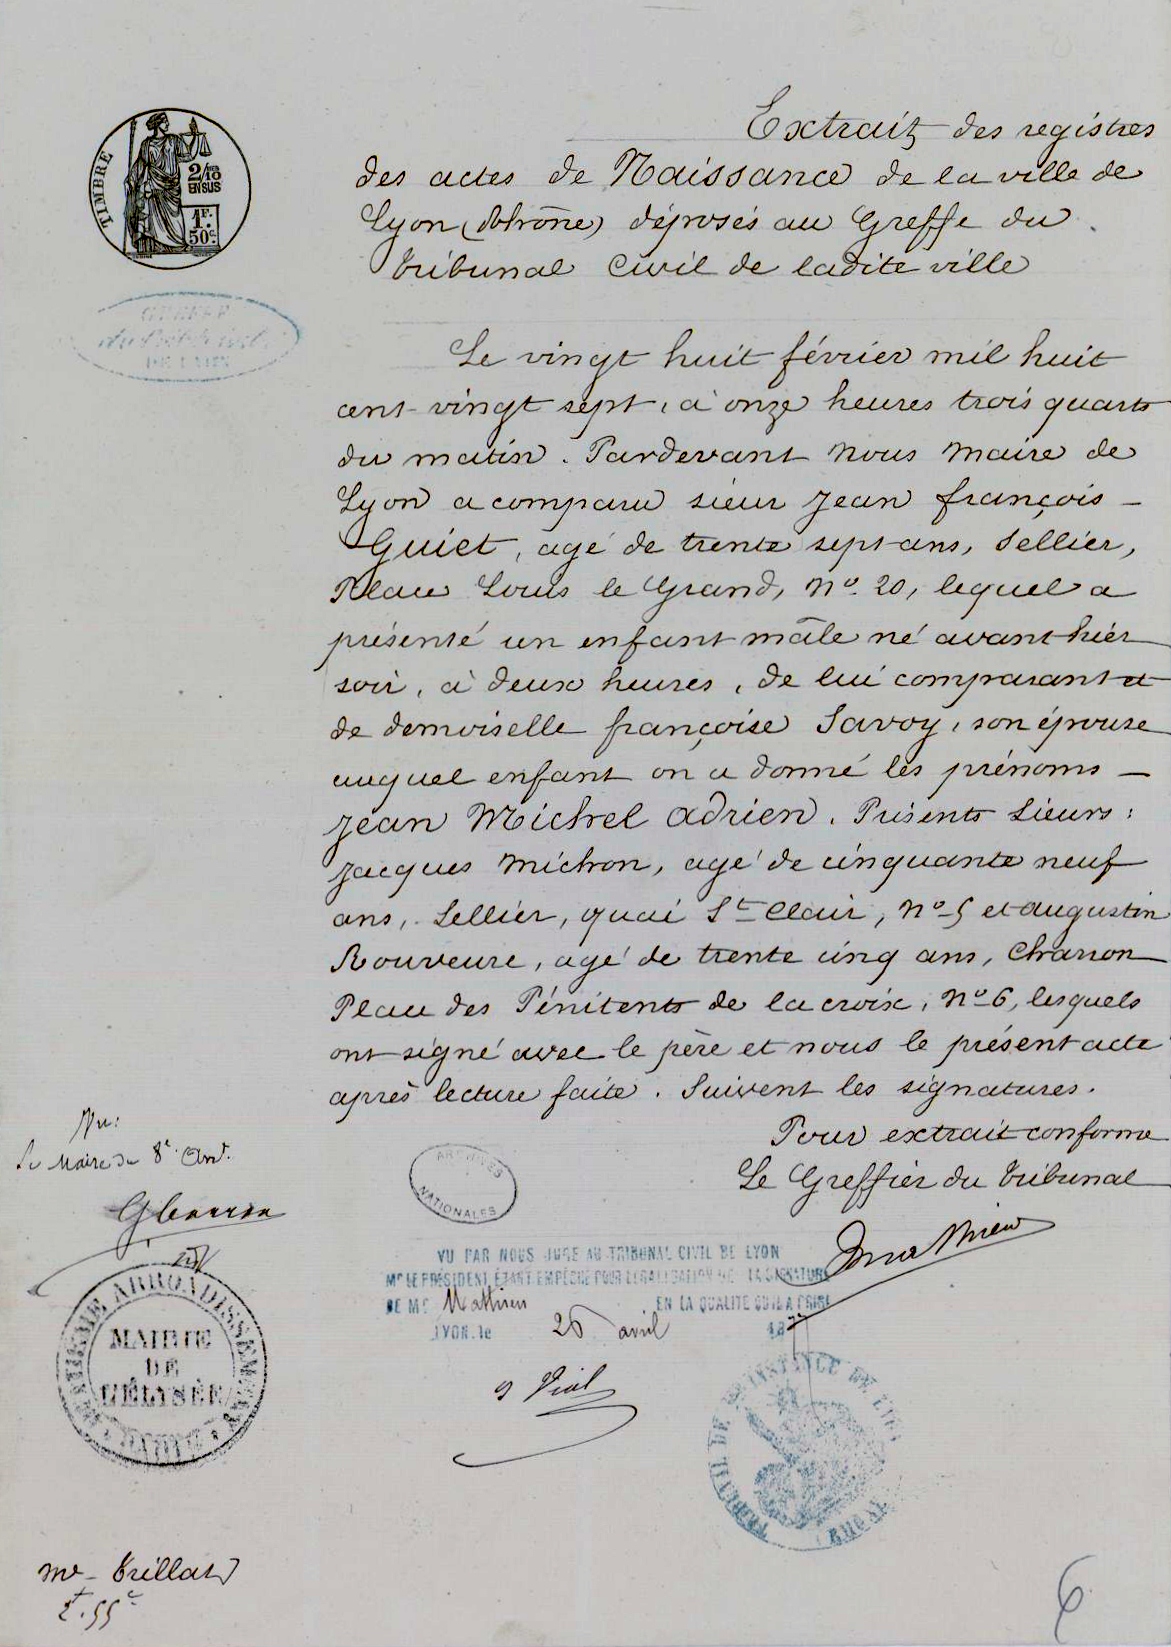 Extrait des registres
des actes de Naissance de la ville de
Lyon (Rhône) déposés au Greffe du
tribunal Civil de ladite ville
TIMBRE
2/10
EN SUS
1F.
50c.
GREFFE
DE LYON
Le vingt huit février mil huit
cent vingt sept, à onze heures trois quarts
du matin. Pardevant Nous Maire de
Lyon a comparu sieur Jean françois -
Guiet, agé de trente sept ans, Sellier,
Place Louis le Grand, No. 20, lequel a
présenté un enfant mâle né avant-hier
soir, à deux heures, de lui comparant et
de demoiselle françoise Savoy, son épouse
auquel enfant on a donné les prénoms -
Jean Michel Adrien. Présents Sieurs :
Jacques Michon, agé de cinquante neuf
ans, Sellier, quai St Clair, No 5 et Augustin
Rouveure, agé de trente cinq ans, Charron
Place des Pénitents de la croix, No 6, lesquels
ont signé avec le père et nous le présent acte
après lecture faite. Suivent les signatures.
Pour extrait conforme
Le Greffier du tribunal
Mathieu
Vu:
Le Maire du 8e Arrt.
ARCHIVES
NATIONALES
VU PAR NOUS JUGE AU TRIBUNAL CIVIL DE LYON
MR LE PRÉSIDENT ÉTANT EMPÊCHÉ POUR LÉGALISATION DE LA SIGNATURE
DE MR Mathieu EN LA QUALITÉ QU'IL A PRISE
LYON, le 26 avril 1877
Vial
HUITIEME ARRONDISSEMENT
MAIRIE
DE
L'ÉLYSÉE
PARIS
TRIBUNAL DE 1RE INSTANCE DE LYON
RHONE
Me Trillat
2f.55c
6